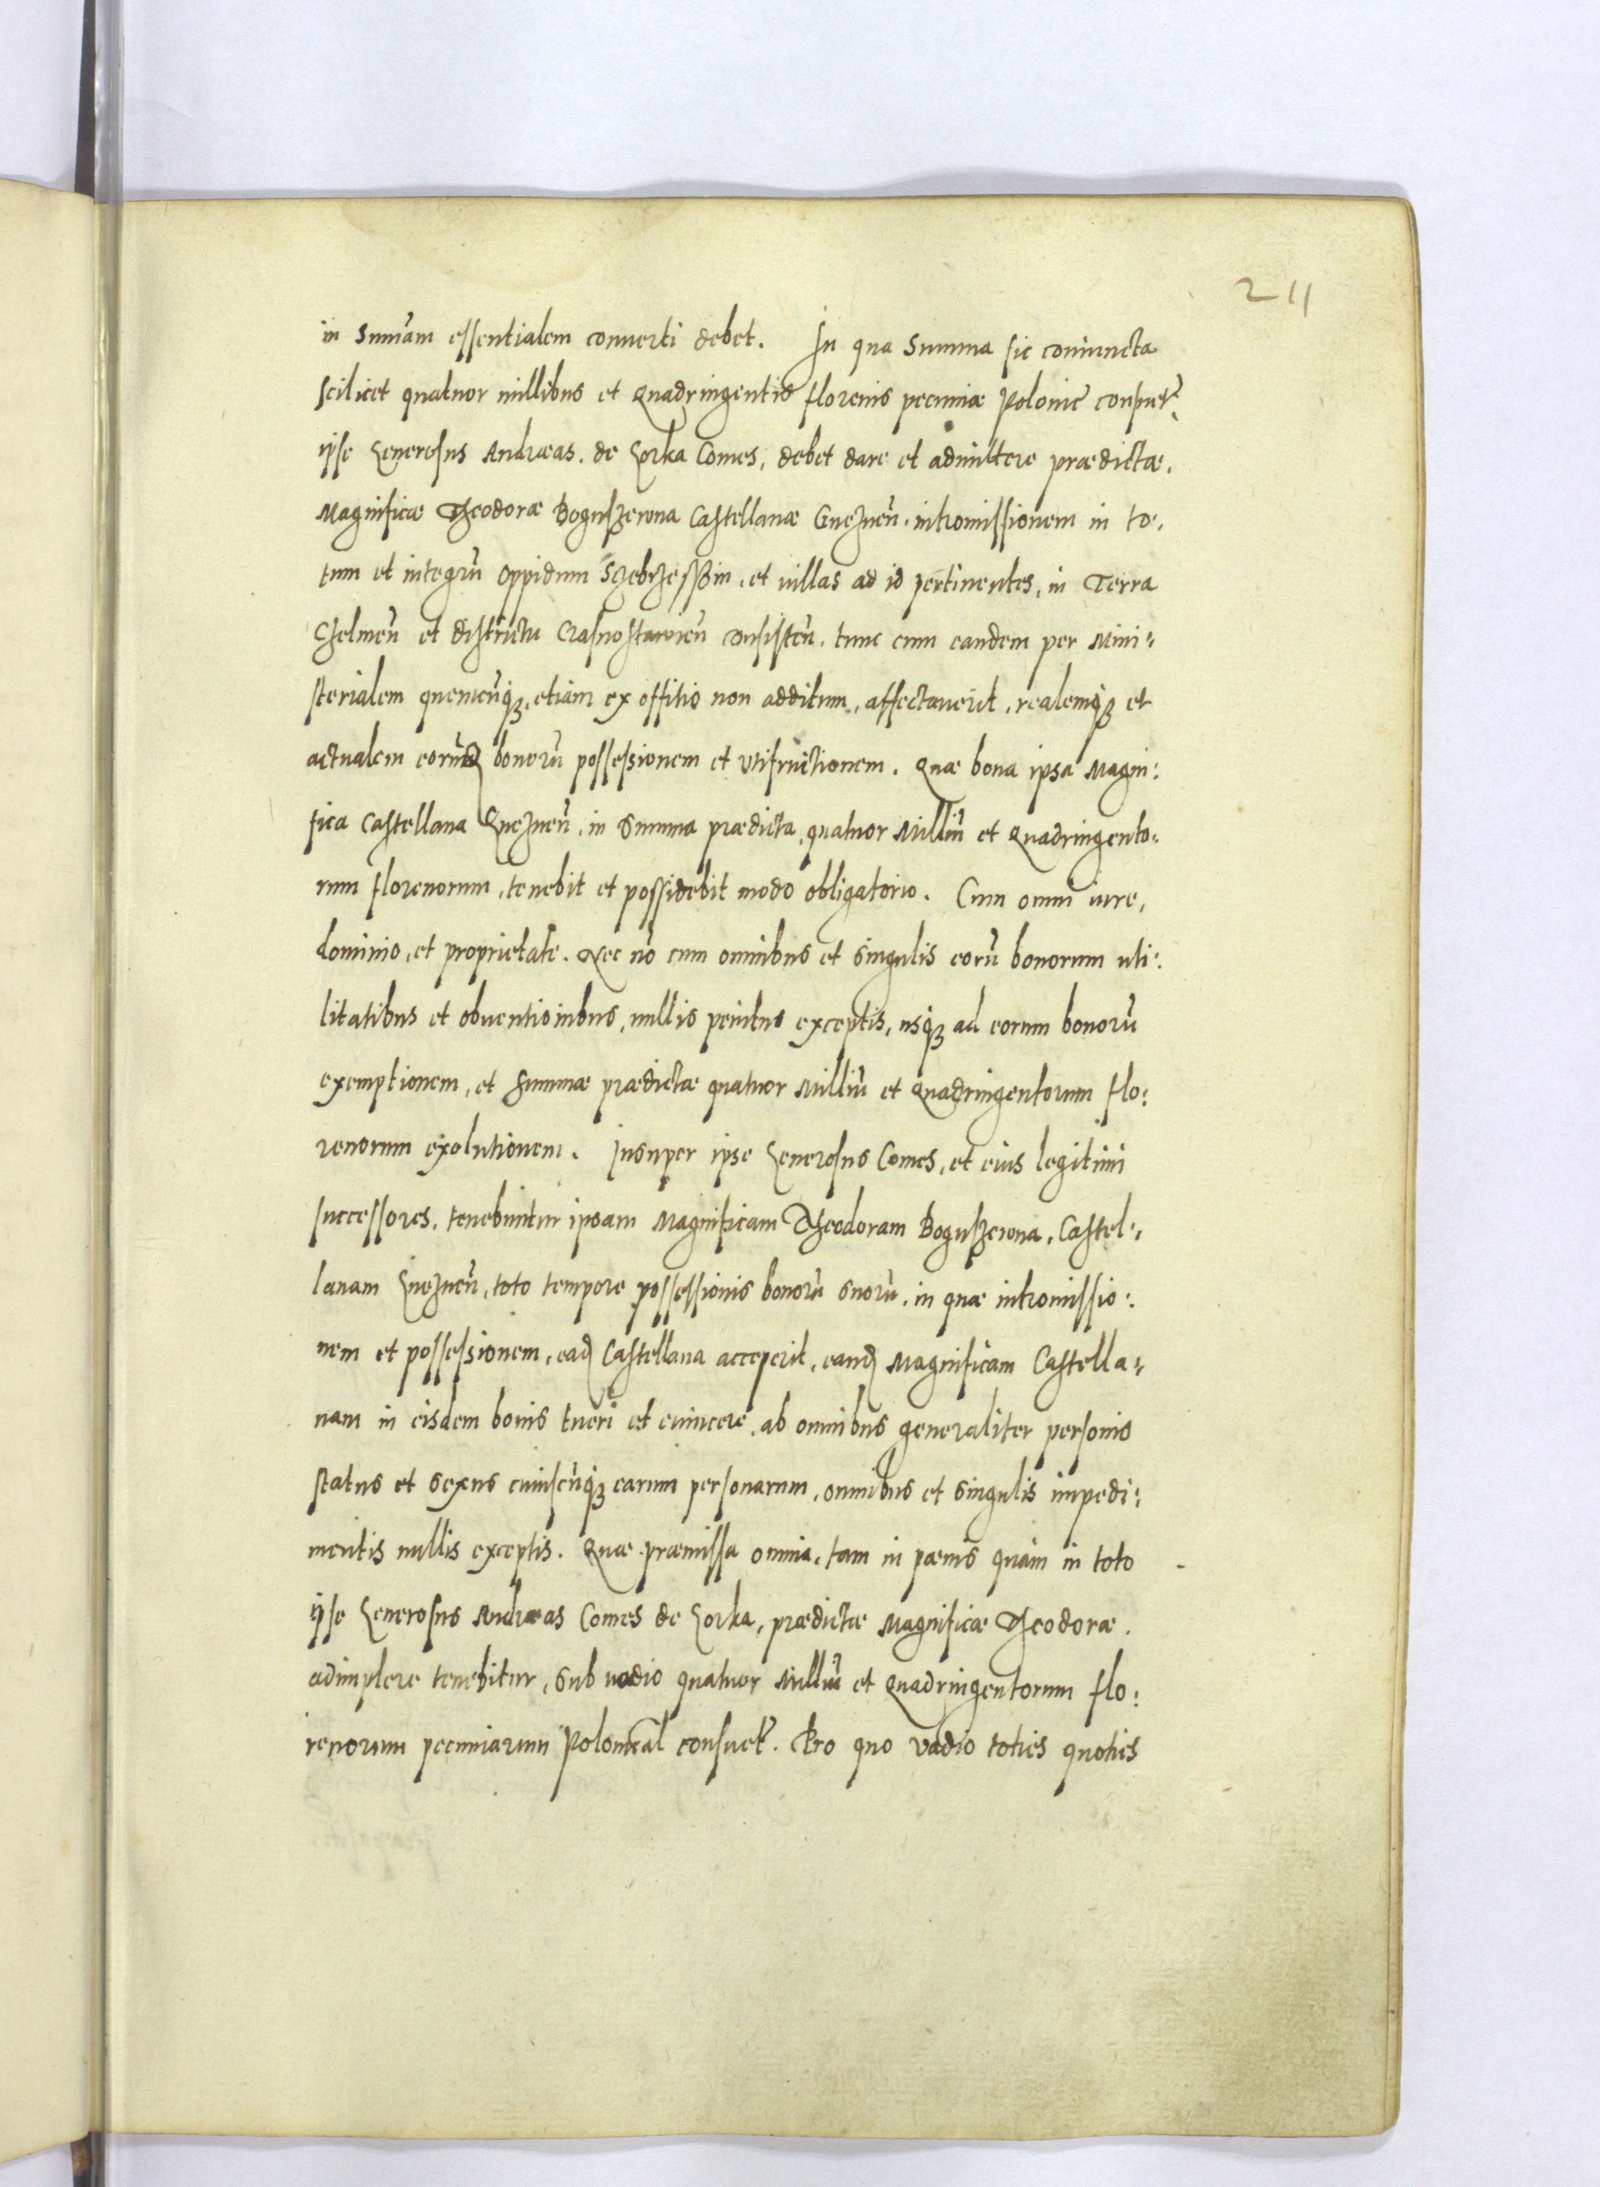 211
in Sumam essentialem conuerti debet. In qua Summa sic coniuncta
scilicet quatuor millibus et Quadringentis florenis pecuniæ Polonic consuet
ipse Generosus Andræas de Gorka Comes, debet dare et admittere prædictæ,
Magnificæ Theodoræ Boguszewna Castellanæ Gnezneñ. intromissionem in to,
tum et integrũ oppidum Sczebrzesszin, et villas ad id pertinentes, in Terra
Chelmeñ et districtu Crasnostawieñ consisteñ. tunc cum eandem per Mini:
sterialem quemcũqz, etiam ex offitio non additum, affectauerit, realemqz et
actualem eorũd bonorũ possessionem et vtifruitionem. Quæ bona ipsa Magni:
fica Castellana Gnezneñ, in Summa prædicta, quatuor Milliũ et Quadringento:
rum florenorum, tenebit et possidebit modo obligatorio. Cum omni iure,
dominio, et proprietate. Nec nõ cum omnibus et singulis eorũ bonorum uti:
litatibus et obuentionibus, nullis penitus exceptis, usqz ad eorum bonorũ
exemptionem, et Summæ prædictæ quatuor Milliũ et Quadringentorum flo:
renorum exolutionem. Insuper ipse Generosus Comes, et eius legitimi
successores, tenebuntur ipsam Magnificam Theodoram Boguszewna, Castel:
lanam Gnezneñ, toto tempore possessionis bonorũ suorũ, in quæ intromissio:
nem et possessionem, ead Castellana acceperit, eand Magnificam Castella:
nam in eisdem bonis tueri et euincere, ab omnibus generaliter personis
status et sexus cuiuscũqz earum personarum, omnibus et singulis impedi:
mentis nullis exceptis. Quæ præmissa omnia, tam in pænis quàm in toto
ipse Generosus Andræas Comes de Gorka, prædictæ Magnificæ Theodoræ.
adimplere tenebitur, sub vadio quatuor Milliũ et Quadringentorum flo:
renorum pecuniarum Polonical consuet. Pro quo vadio toties quoties